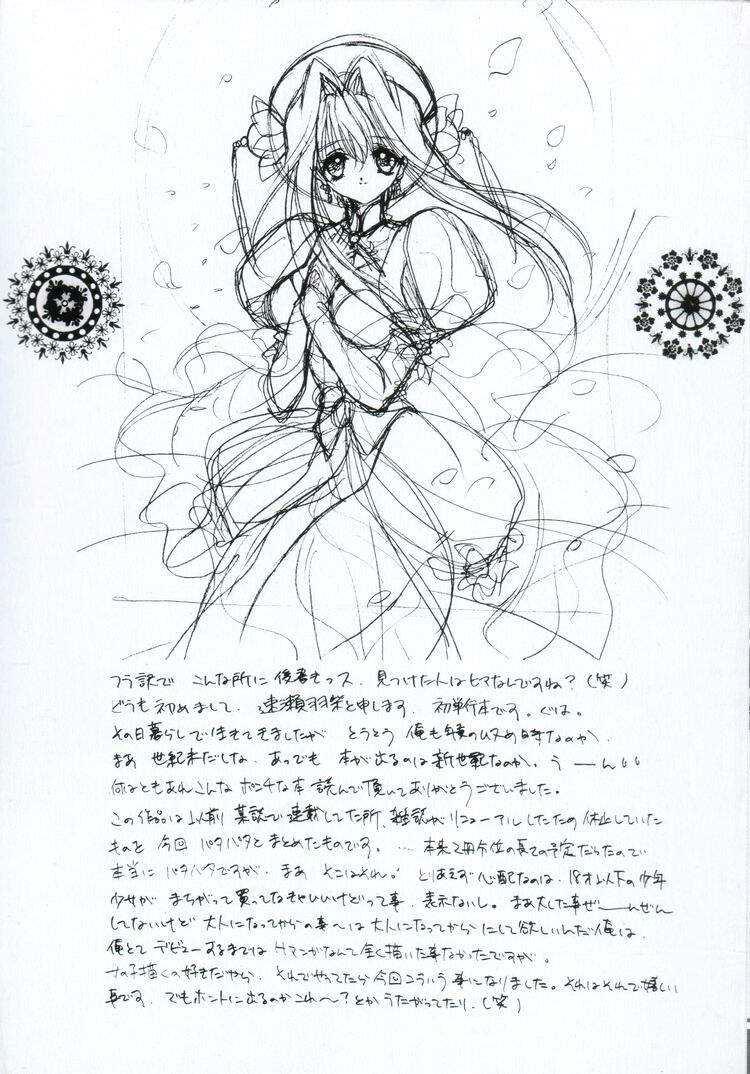 つう訳で こんな所に後書きっス。見つけた人はヒマなしですね?(笑)
どうも初めまして。速瀬羽柴と申します。初単行本です。ぐは。
その日暮らしで生きてきましたが とうとう 俺も年貢の収め時なのか、
まあ 世紀末だしな。あっでも 本が出るのは新世紀なのか。うーーん
何はともあれこんな ポンチな本 読んで頂いてありがとうございました。
この作品は以前 某誌で連載してた所、雑誌がリニューアルしたため休止していた
ものを 今回 パタパタとまとめたものです。…. 本来2冊分位の長さの予定だったので
本当に パタパタですが、まあ そこはそれ。 とりあえず心配なのは、18才以下の少年
少女が まちがって買ってなきゃいいけどって事、表示ないし。まあ大した事ぜーーんぜん
してないけど 大人になってからの事〜は大人になってからにして欲しいんだ俺は。
俺とて デビューするまでは Hマンガなんて全く描いた事なかったですが。
女の子描くの好きだから、それでやってたら今回こういう事になりました。それはそれで嬉しい
事です。でもホントに出るのかこれ〜?とか うたがってたり。(笑)